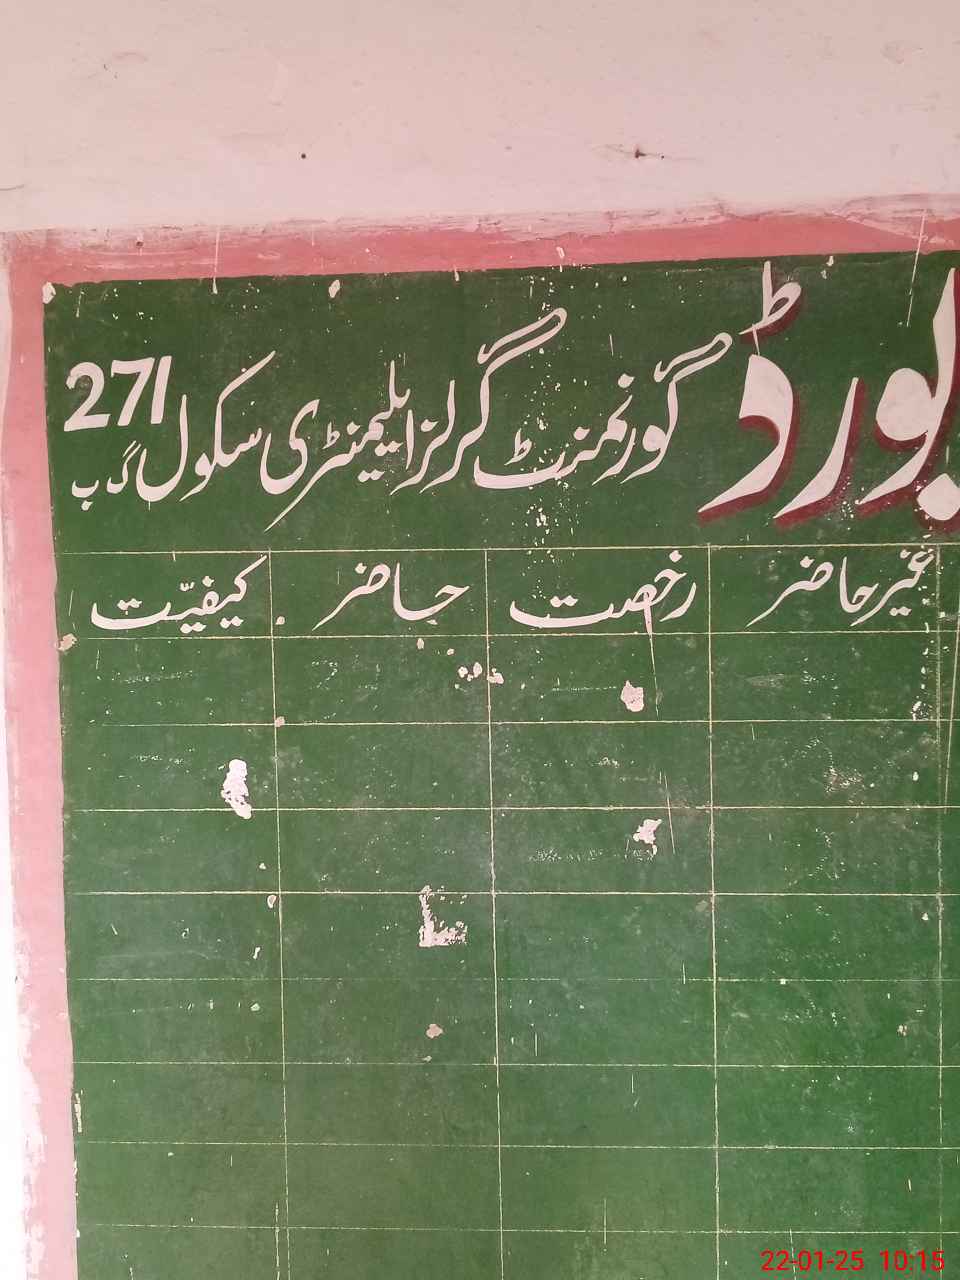 بورڈ گورنمنٹ گرلز ایلیمنٹری سکول 271
گ ب
غیر حاضر رخصت حاضر کیفیّت
22-01-25 10:15